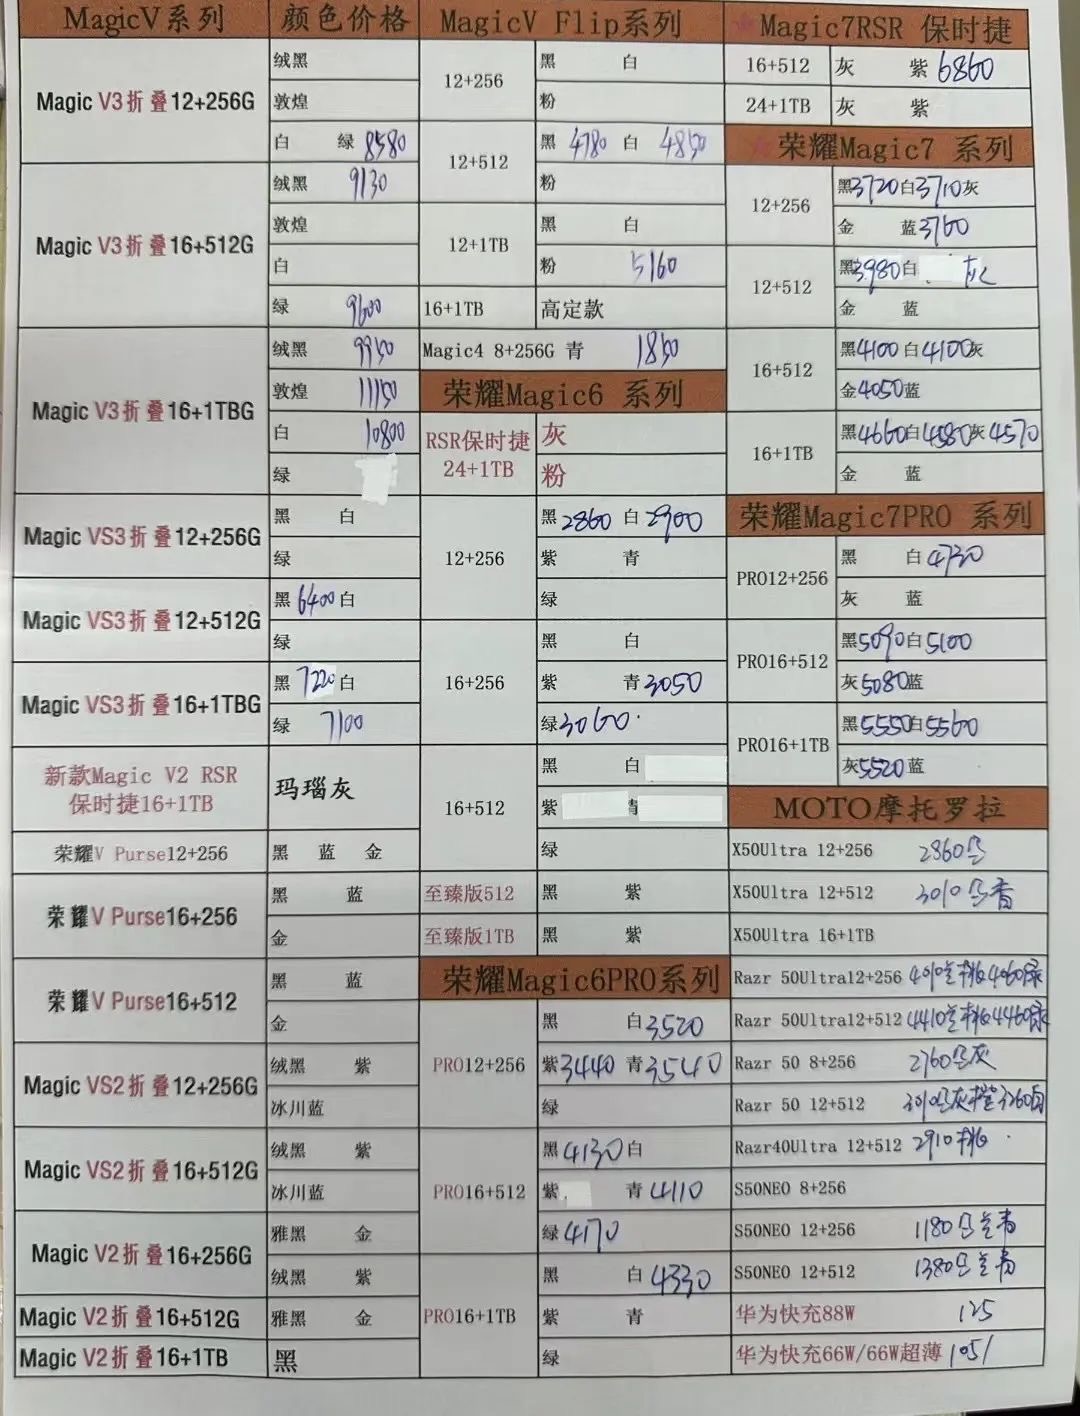 MagicV系列 颜色价格
Magic V3折叠12+256G
绒黑
敦煌
白 绿 8580
Magic V3折叠16+512G
绒黑 9130
敦煌
白
绿 9600
Magic V3折叠16+1TBG
绒黑 9950
敦煌 11150
白 10800
绿
Magic VS3折叠12+256G
黑 白
绿
Magic VS3折叠12+512G
黑6400白
绿
Magic VS3折叠16+1TBG
黑7220白
绿 7100
新款Magic V2 RSR
保时捷16+1TB
玛瑙灰
荣耀V Purse12+256 黑 蓝 金
荣耀V Purse16+256
黑 蓝
金
荣耀V Purse16+512
黑 蓝
金
Magic VS2折叠12+256G
绒黑 紫
冰川蓝
Magic VS2折叠16+512G
绒黑 紫
冰川蓝
Magic V2折叠16+256G
雅黑 金
绒黑 紫
Magic V2折叠16+512G 雅黑 金
Magic V2折叠16+1TB 黑
MagicV Flip系列
12+256
黑 白
粉
12+512
黑 4780 白 4850
粉
12+1TB
黑 白
粉 5160
16+1TB 高定款
Magic4 8+256G 青 1850
荣耀Magic6 系列
RSR保时捷
24+1TB
灰
粉
12+256
黑2860 白2900
紫 青
绿
16+256
黑 白
紫 青3050
绿3060
16+512
黑 白
紫 青
绿
至臻版512 黑 紫
至臻版1TB 黑 紫
荣耀Magic6PRO系列
PRO12+256
黑 白3520
紫3440 青3540
绿
PRO16+512
黑4130白
紫 青4110
绿4170
PRO16+1TB
黑 白4330
紫 青
绿
Magic7RSR 保时捷
16+512 灰 紫 6860
24+1TB 灰 紫
荣耀Magic7 系列
12+256
黑3720白3710灰
金 蓝3760
12+512
黑3980白 灰
金 蓝
16+512
黑4100白4100灰
金4050蓝
16+1TB
黑4660白4580灰4570
金 蓝
荣耀Magic7PRO 系列
PRO12+256
黑 白4730
灰 蓝
PRO16+512
黑5090白5100
灰5080蓝
PRO16+1TB
黑5550白5560
灰5520蓝
MOTO摩托罗拉
X50Ultra 12+256 2860
X50Ultra 12+512 3010
X50Ultra 16+1TB
Razr 50Ultra12+256 4010 4060
Razr 50Ultra12+512 4410 4460
Razr 50 8+256 2760 灰
Razr 50 12+512 灰
Razr40Ultra 12+512 2910
S50NEO 8+256
S50NEO 12+256 1180
S50NEO 12+512 1380
华为快充88W 125
华为快充66W/66W超薄 105/